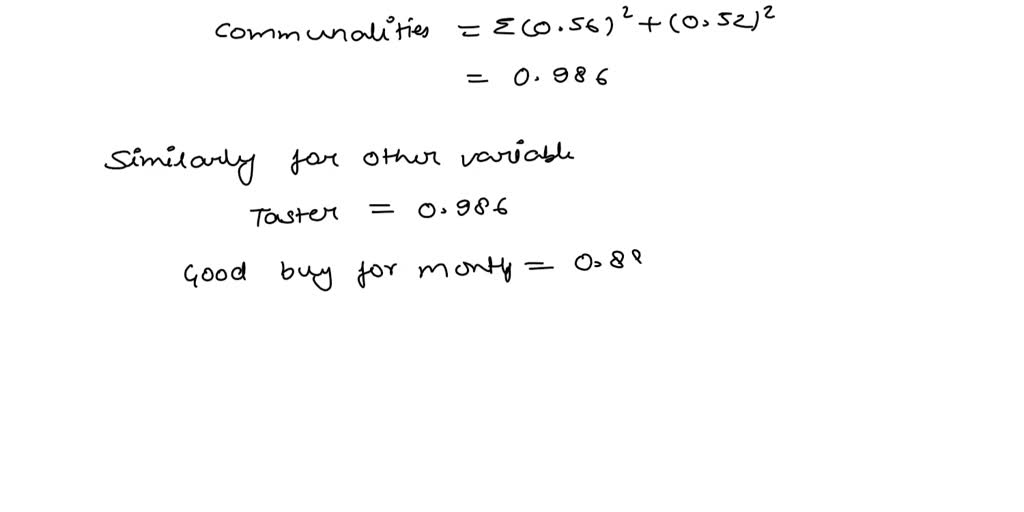 communalities = Σ(0.56)² + (0.52)²
= 0.986
Similarly for other variable
Taster = 0.986
Good buy for monty = 0.88